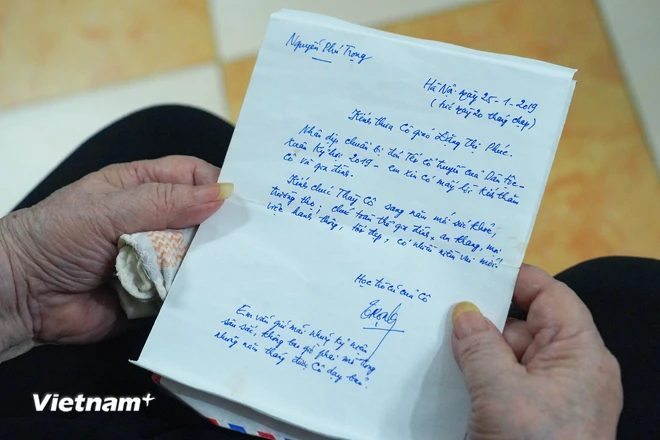 Nguyễn Phú Trọng
Hà Nội ngày 25-1-2019
(tức ngày 20 tháng chạp)
Kính thưa Cô giáo Đặng Thị Phúc.
Nhân dịp chuẩn bị đón Tết cổ truyền của Dân tộc-
Xuân Kỷ Hợi 2019 - em xin có mấy lời kính thăm
Cô và gia đình.
Kính chúc Thầy Cô sang năm mới sức khỏe,
trường thọ; chúc toàn thể gia đình an khang, mọi
việc hanh thông, tốt đẹp, có nhiều niềm vui mới.
Học trò cũ của Cô
Trọng
Em vẫn giữ mãi những kỷ niệm
sâu sắc, không bao giờ phai mờ trong
những năm tháng được Cô dạy bảo.
Vietnam+